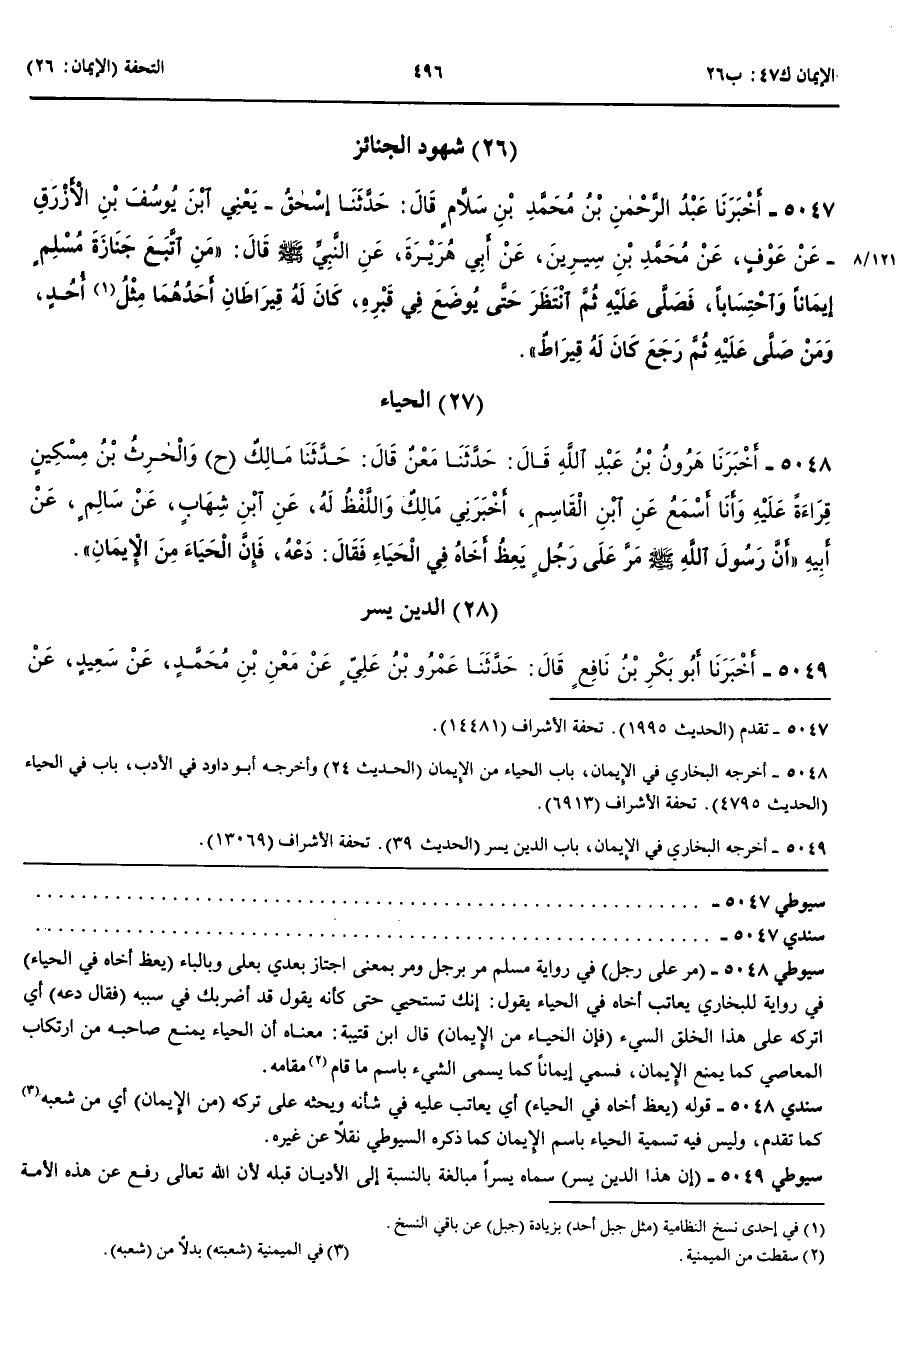 الإيمان ك٤٧: ب٢٦ ٤٩٦ التحفة (الإيمان: ٢٦)
(٢٦) شهود الجنائز
٥٠٤٧ ـ أَخْبَرَنَا عَبْدُ الرَّحْمٰنِ بْنُ مُحَمَّدِ بْنِ سَلَّامٍ قَالَ: حَدَّثَنَا إِسْحٰقُ ـ يَعْنِي ٱبْنَ يُوسُفَ بْنِ الْأَزْرَقِ
٨/١٢١ ـ عَنْ عَوْفٍ، عَنْ مُحَمَّدِ بْنِ سِيرِينَ، عَنْ أَبِي هُرَيْرَةَ، عَنِ النَّبِيِّ ﷺ قَالَ: «مَنِ ٱتَّبَعَ جَنَازَةَ مُسْلِمٍ
إِيمَاناً وَٱحْتِسَاباً، فَصَلَّى عَلَيْهِ ثُمَّ ٱنْتَظَرَ حَتَّى يُوضَعَ فِي قَبْرِهِ، كَانَ لَهُ قِيرَاطَانِ أَحَدُهُمَا مِثْلُ(١) أُحُدٍ،
وَمَنْ صَلَّى عَلَيْهِ ثُمَّ رَجَعَ كَانَ لَهُ قِيرَاطٌ».
(٢٧) الحياء
٥٠٤٨ ـ أَخْبَرَنَا هَرُونُ بْنُ عَبْدِ ٱللَّهِ قَالَ: حَدَّثَنَا مَعْنٌ قَالَ: حَدَّثَنَا مَالِكٌ (ح) وَالْحٰرِثُ بْنُ مِسْكِينٍ
قِرَاءَةً عَلَيْهِ وَأَنَا أَسْمَعُ عَنِ ٱبْنِ الْقَاسِمِ، أَخْبَرَنِي مَالِكٌ وَاللَّفْظُ لَهُ، عَنِ ٱبْنِ شِهَابٍ، عَنْ سَالِمٍ، عَنْ
أَبِيهِ «أَنَّ رَسُولَ ٱللَّهِ ﷺ مَرَّ عَلَى رَجُلٍ يَعِظُ أَخَاهُ فِي الْحَيَاءِ فَقَالَ: دَعْهُ، فَإِنَّ الْحَيَاءَ مِنَ الْإِيمَانِ».
(٢٨) الدين يسر
٥٠٤٩ ـ أَخْبَرَنَا أَبُو بَكْرِ بْنُ نَافِعٍ قَالَ: حَدَّثَنَا عَمْرُو بْنُ عَلِيٍّ عَنْ مَعْنِ بْنِ مُحَمَّدٍ، عَنْ سَعِيدٍ، عَنْ
٥٠٤٧ ـ تقدم (الحديث ١٩٩٥). تحفة الأشراف (١٤٤٨١).
٥٠٤٨ ـ أخرجه البخاري في الإيمان، باب الحياء من الإيمان (الحديث ٢٤) وأخرجه أبو داود في الأدب، باب في الحياء
(الحديث ٤٧٩٥). تحفة الأشراف (٦٩١٣).
٥٠٤٩ ـ أخرجه البخاري في الإيمان، باب الدين يسر (الحديث ٣٩). تحفة الأشراف (١٣٠٦٩).
سيوطي ٥٠٤٧ ـ ..........................................................
سندي ٥٠٤٧ ـ ..........................................................
سيوطي ٥٠٤٨ ـ (مر على رجل) في رواية مسلم مر برجل ومر بمعنى اجتاز بعدي بعلى وبالباء (يعظ أخاه في الحياء)
في رواية للبخاري يعاتب أخاه في الحياء يقول: إنك تستحيي حتى كأنه يقول قد أضربك في سببه (فقال دعه) أي
اتركه على هذا الخلق السيء (فإن الحياء من الإيمان) قال ابن قتيبة: معناه أن الحياء يمنع صاحبه من ارتكاب
المعاصي كما يمنع الإيمان، فسمي إيماناً كما يسمى الشيء باسم ما قام(٢) مقامه.
سندي ٥٠٤٨ ـ قوله (يعظ أخاه في الحياء) أي يعاتب عليه في شأنه ويحثه على تركه (من الإيمان) أي من شعبه(٣)
كما تقدم، وليس فيه تسمية الحياء باسم الإيمان كما ذكره السيوطي نقلاً عن غيره.
سيوطي ٥٠٤٩ ـ (إن هذا الدين يسر) سماه يسراً مبالغة بالنسبة إلى الأديان قبله لأن الله تعالى رفع عن هذه الأمة
(١) في إحدى نسخ النظامية (مثل جبل أحد) بزيادة (جبل) عن باقي النسخ.
(٢) سقطت من الميمنية. (٣) في الميمنية (شعبته) بدلاً من (شعبه).